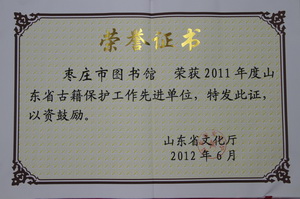 荣誉证书
枣庄市图书馆 荣获2011年度山
东省古籍保护工作先进单位，特发此证，
以资鼓励。
山东省文化厅
2012年6月